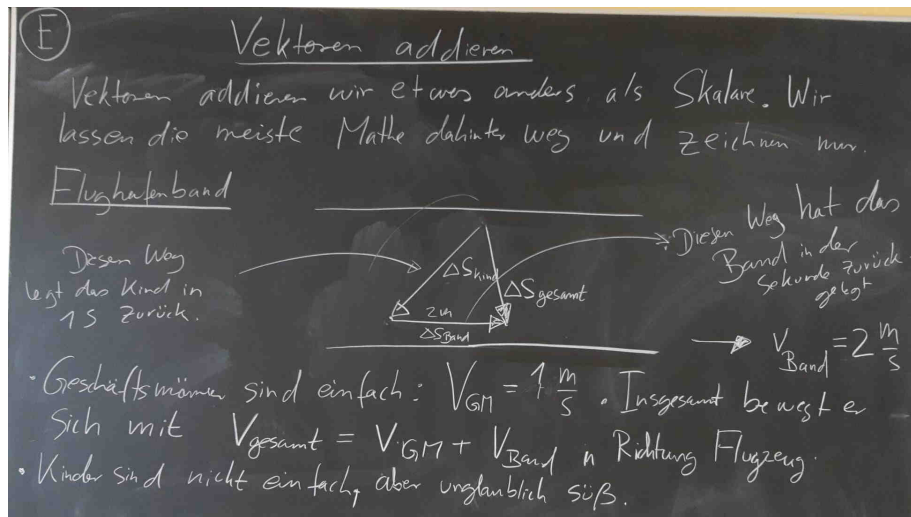 E
Vektoren addieren
Vektoren addieren wir etwas anders als Skalare. Wir
lassen die meiste Mathe dahinter weg und zeichnen nur.
Flughafenband
Diesen Weg
legt das Kind in
1 S zurück.
ΔS Kind
ΔS gesamt
2m
ΔS Band
Diesen Weg hat das
Band in der
Sekunde zurück
gelegt
V Band = 2 m/s
• Geschäftsmänner sind einfach: V GM = 1 m/s. Insgesamt bewegt er
sich mit V gesamt = V GM + V Band n Richtung Flugzeug.
• Kinder sind nicht einfach, aber unglaublich süß.